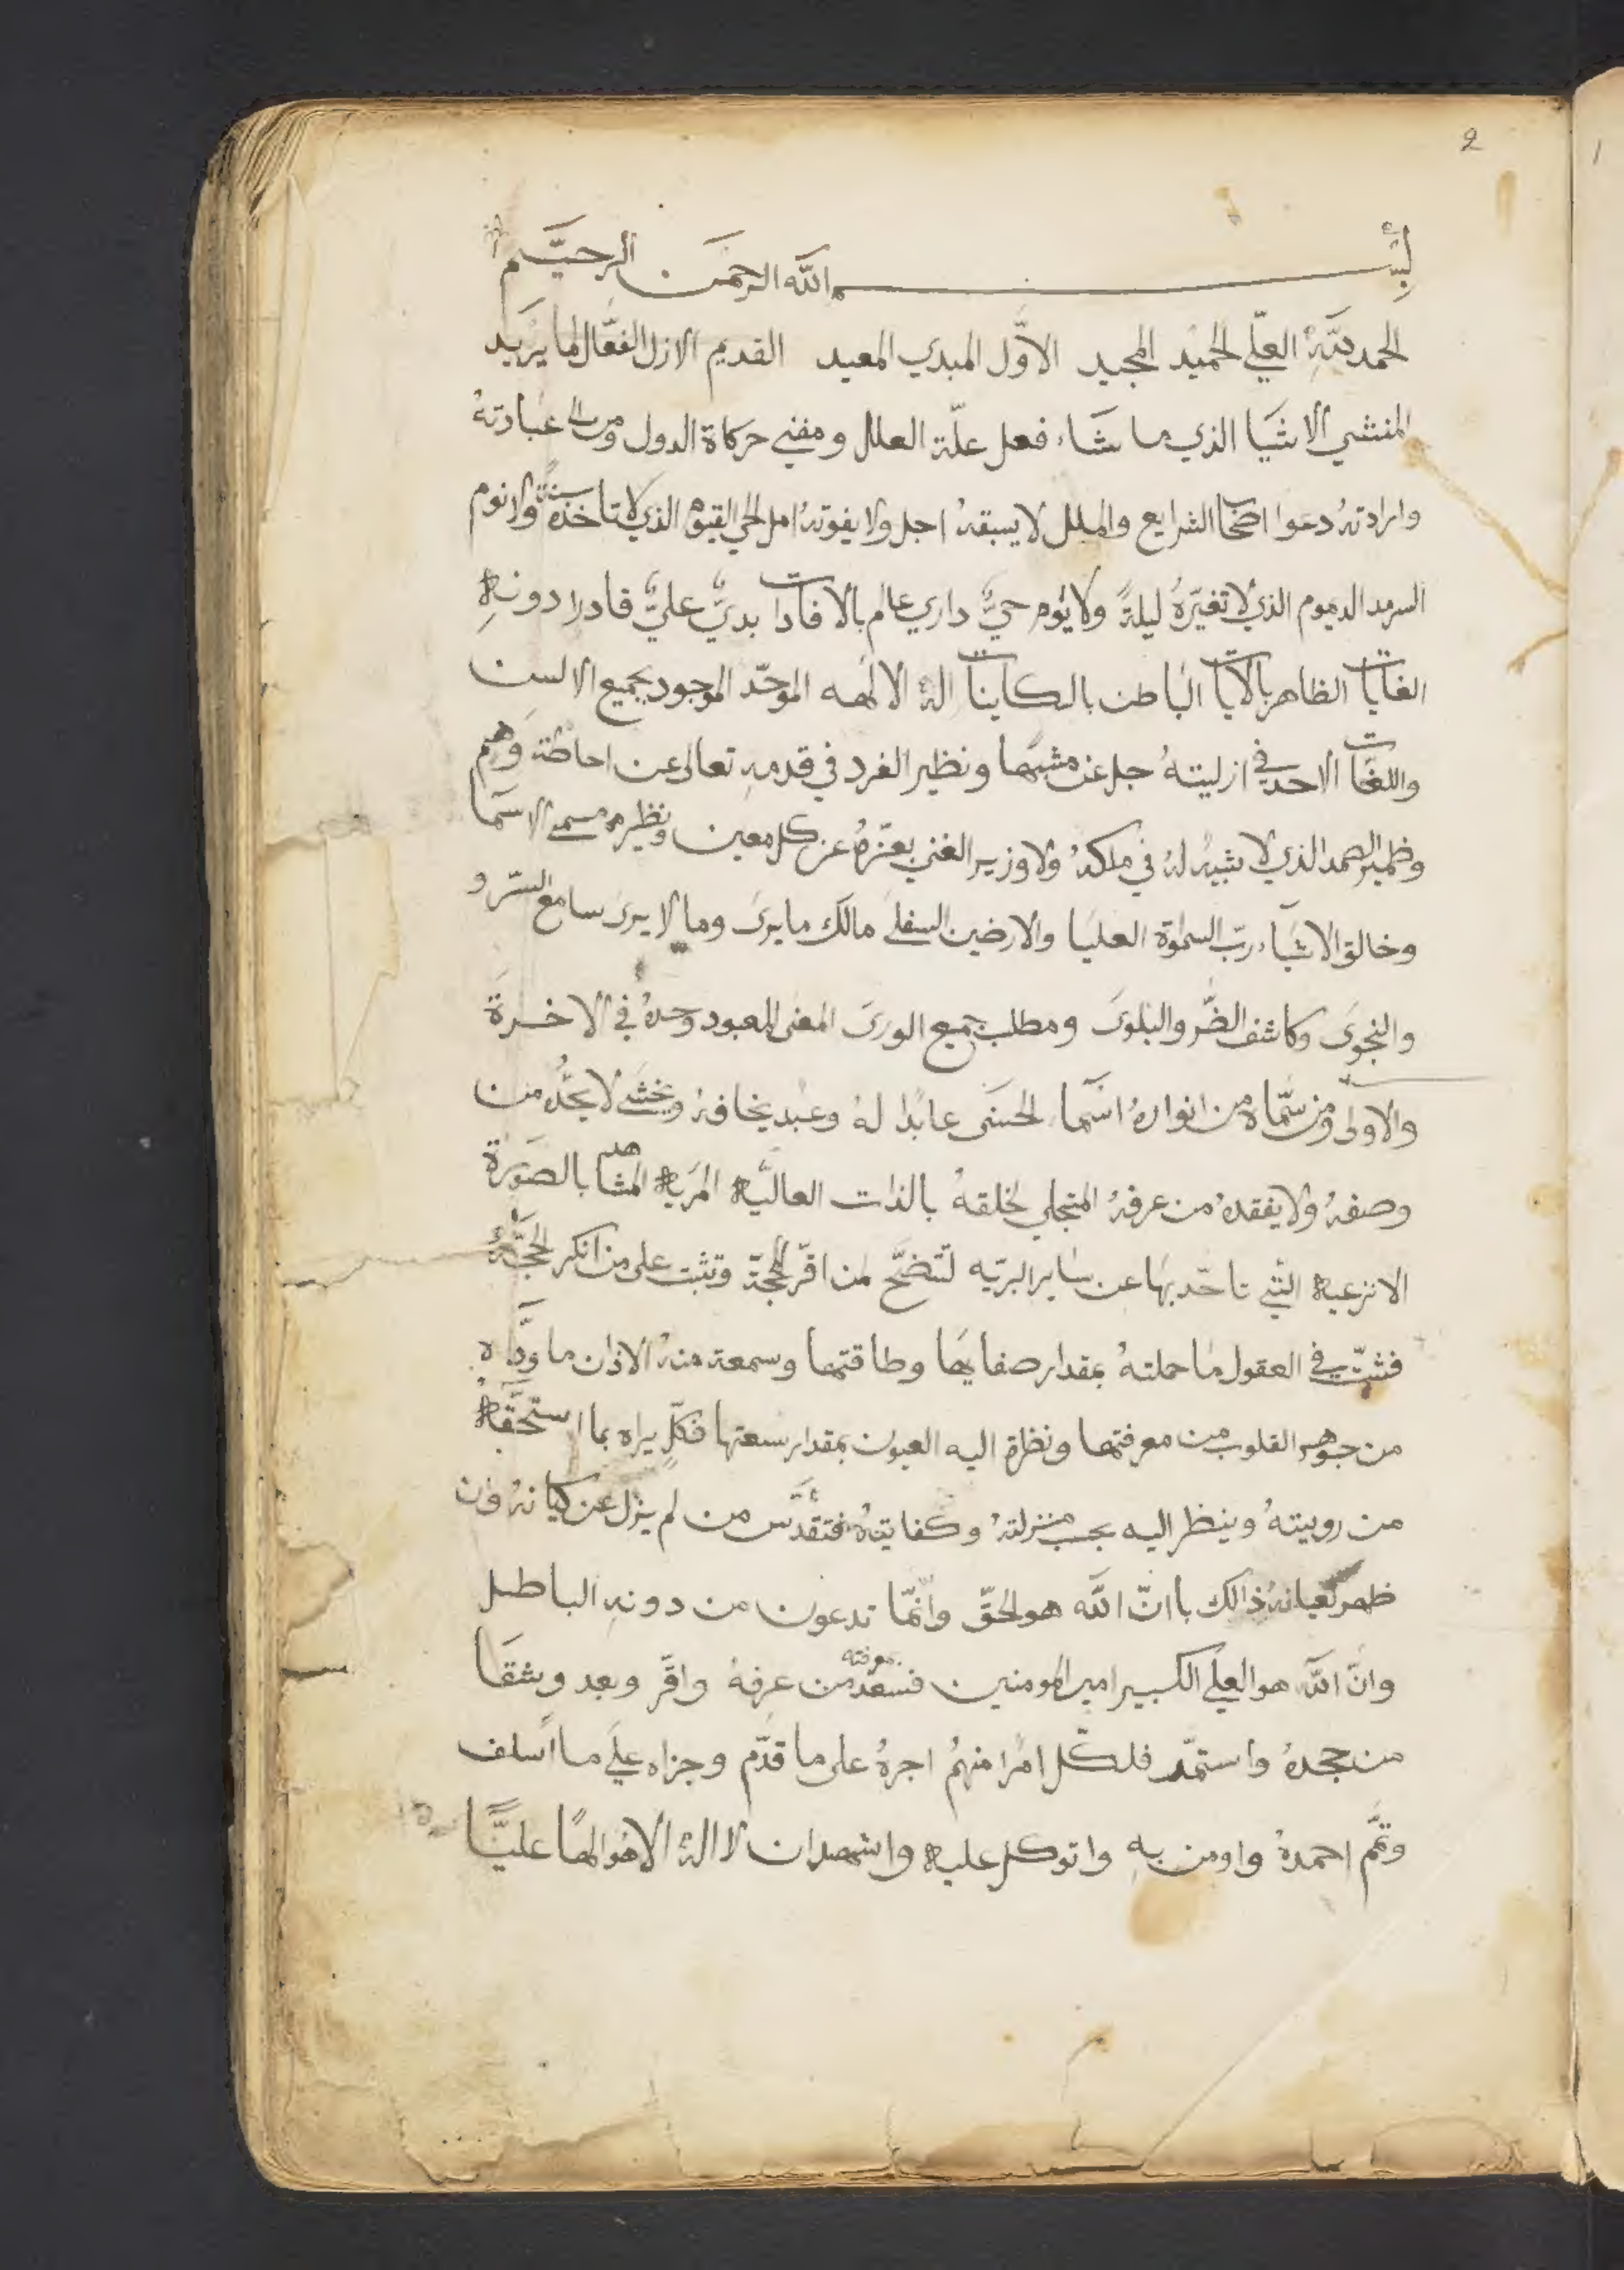 2
بسم الله الرحمن الرحيم
الحمد لله العلي الحميد المجيد الاوّل المبدي المعيد القديم الازل الفعّال لما يريد
المنشي الاشيا الذي ما شاء فعل علّة العلل ومفني حركاة الدول ومن الى عبادته
وارادته دعوا اصحاب الشرايع والملل لا يسبقه اجل ولا يفوته امل الحي القيوم الذي لا تاخذه سنة ولا نوم
السرمد الديموم الذي لا تغيّره ليلةً ولا يوم حيٌّ داري عالم بالافادات بديٌّ عليٌّ قادرا دونه
الغايات الظاهر بالايات الباطن بالكاينات اله الالهه الموحّد الموجود بجميع الالسن
واللغات الاحد في ازليته جل عن مشبها ونظير الفرد في قدمه تعالى عن احاطة وهم
وظمير الصمد الذي لا شبيه له في ملكه ولا وزير الغني بعزّه عن كل معين ونظير مسمي الاسما
وخالق الاشياء ربّ السموة العليا والارضين السفلى مالك ما يرى وما لا يرى سامع السرّ و
والنجوى وكاشف الضّر والبلوى ومطلب جميع الورى المعنى المعبود وحده في الاخرة
والاولى ومن سمّاه من انواره اسما الحسنى عابدا له وعبد يخافه ويخشى لا يحدّه من
وصفه ولا يفقده من عرفه المتجلي لخلقه بالذات العاليّه المريه المشاهد بالصورة
الانزعيه التي تاحّد بها عن ساير البريّه لتتضّح لمن اقرّ الحجة وتثبت على من انكر الحجّة
فثبّت في العقول ما حملته بمقدار صفايها وطاقتها وسمعة منه الاذان ما ودّاه
من جوهر القلوب من معرفتها ونظرة اليه العيون بمقدار سعتها فكلّ يراه بما استحقّه
من روبيته وينظر اليه بحسب منزلته وكفايته فتقدّس من لم يزل عن كيانه وان
ظهر لعيانه ذالك باانّ الله هو الحقّ وانّما تدعون من دونه الباطل
وانّ الله هو العلي الكبير امير المومنين فسعد معرفته من عرفه واقرّ وبعد وشقا
من جحده واستمّد فلكل امرا منهم اجره على ما قدّم وجزاه على ما اسلف
وتمّم احمده واومن به واتوكل عليه واشهد ان لا اله الا هو الها عليًّا